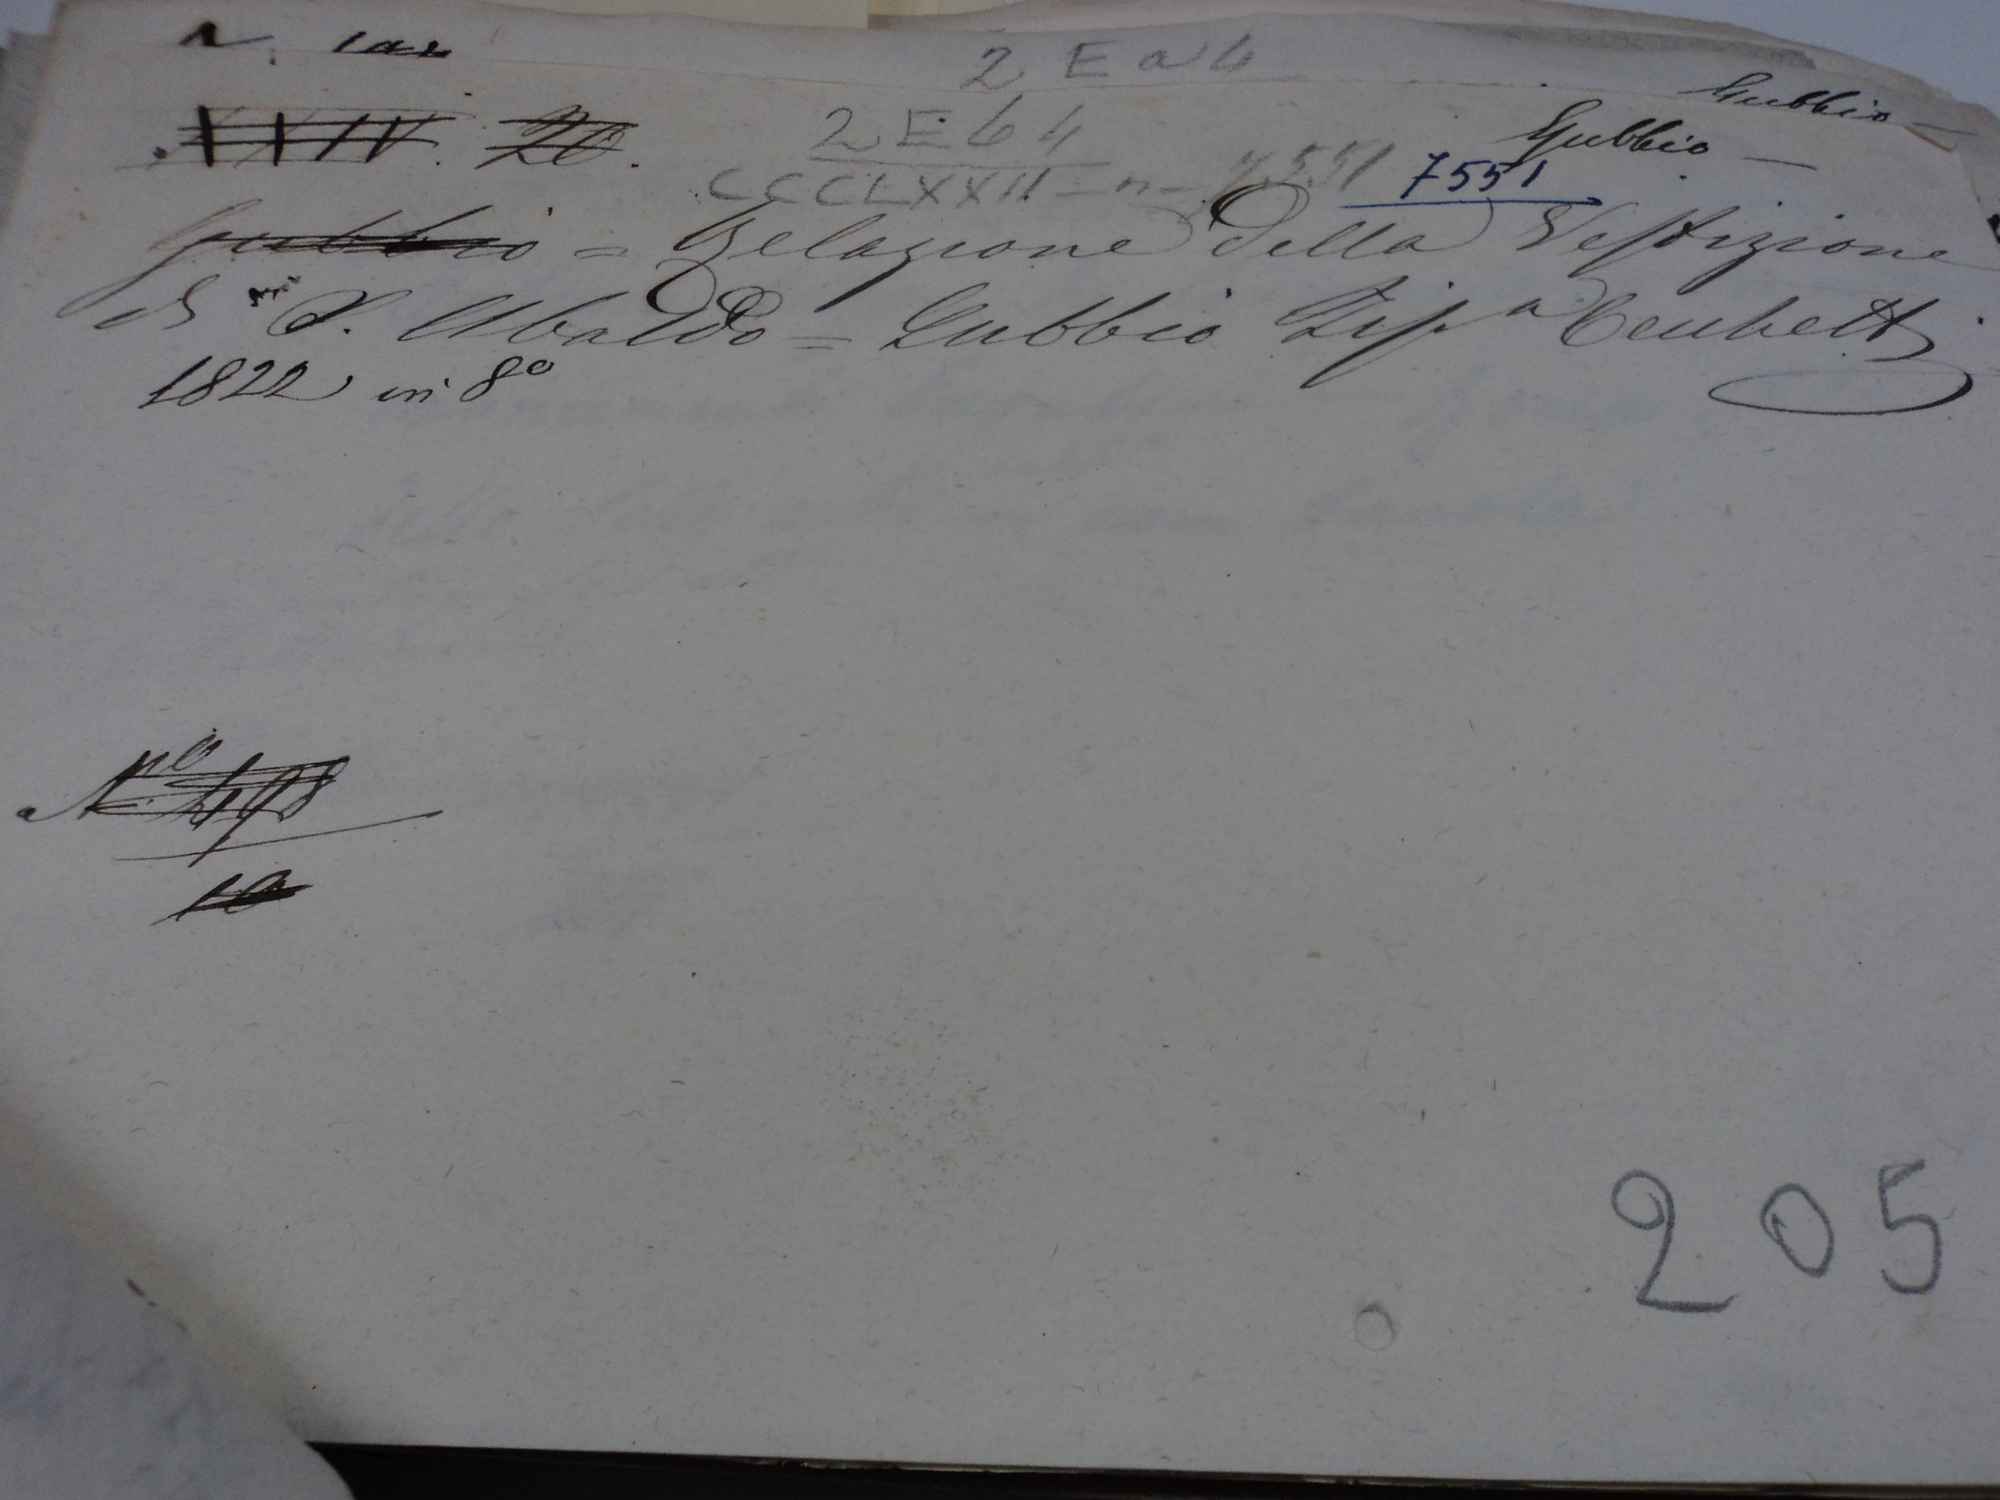 2 E a 4
Gubbio —
XXIV. 20.
2 E b 4
Gubbio —
CCCCLXXII - n - 7551
7551
Gubbio = Relazione della Vestizione
di S. Ubaldo = Gubbio Tip.a
1822 in 8o
No. 498
10
205